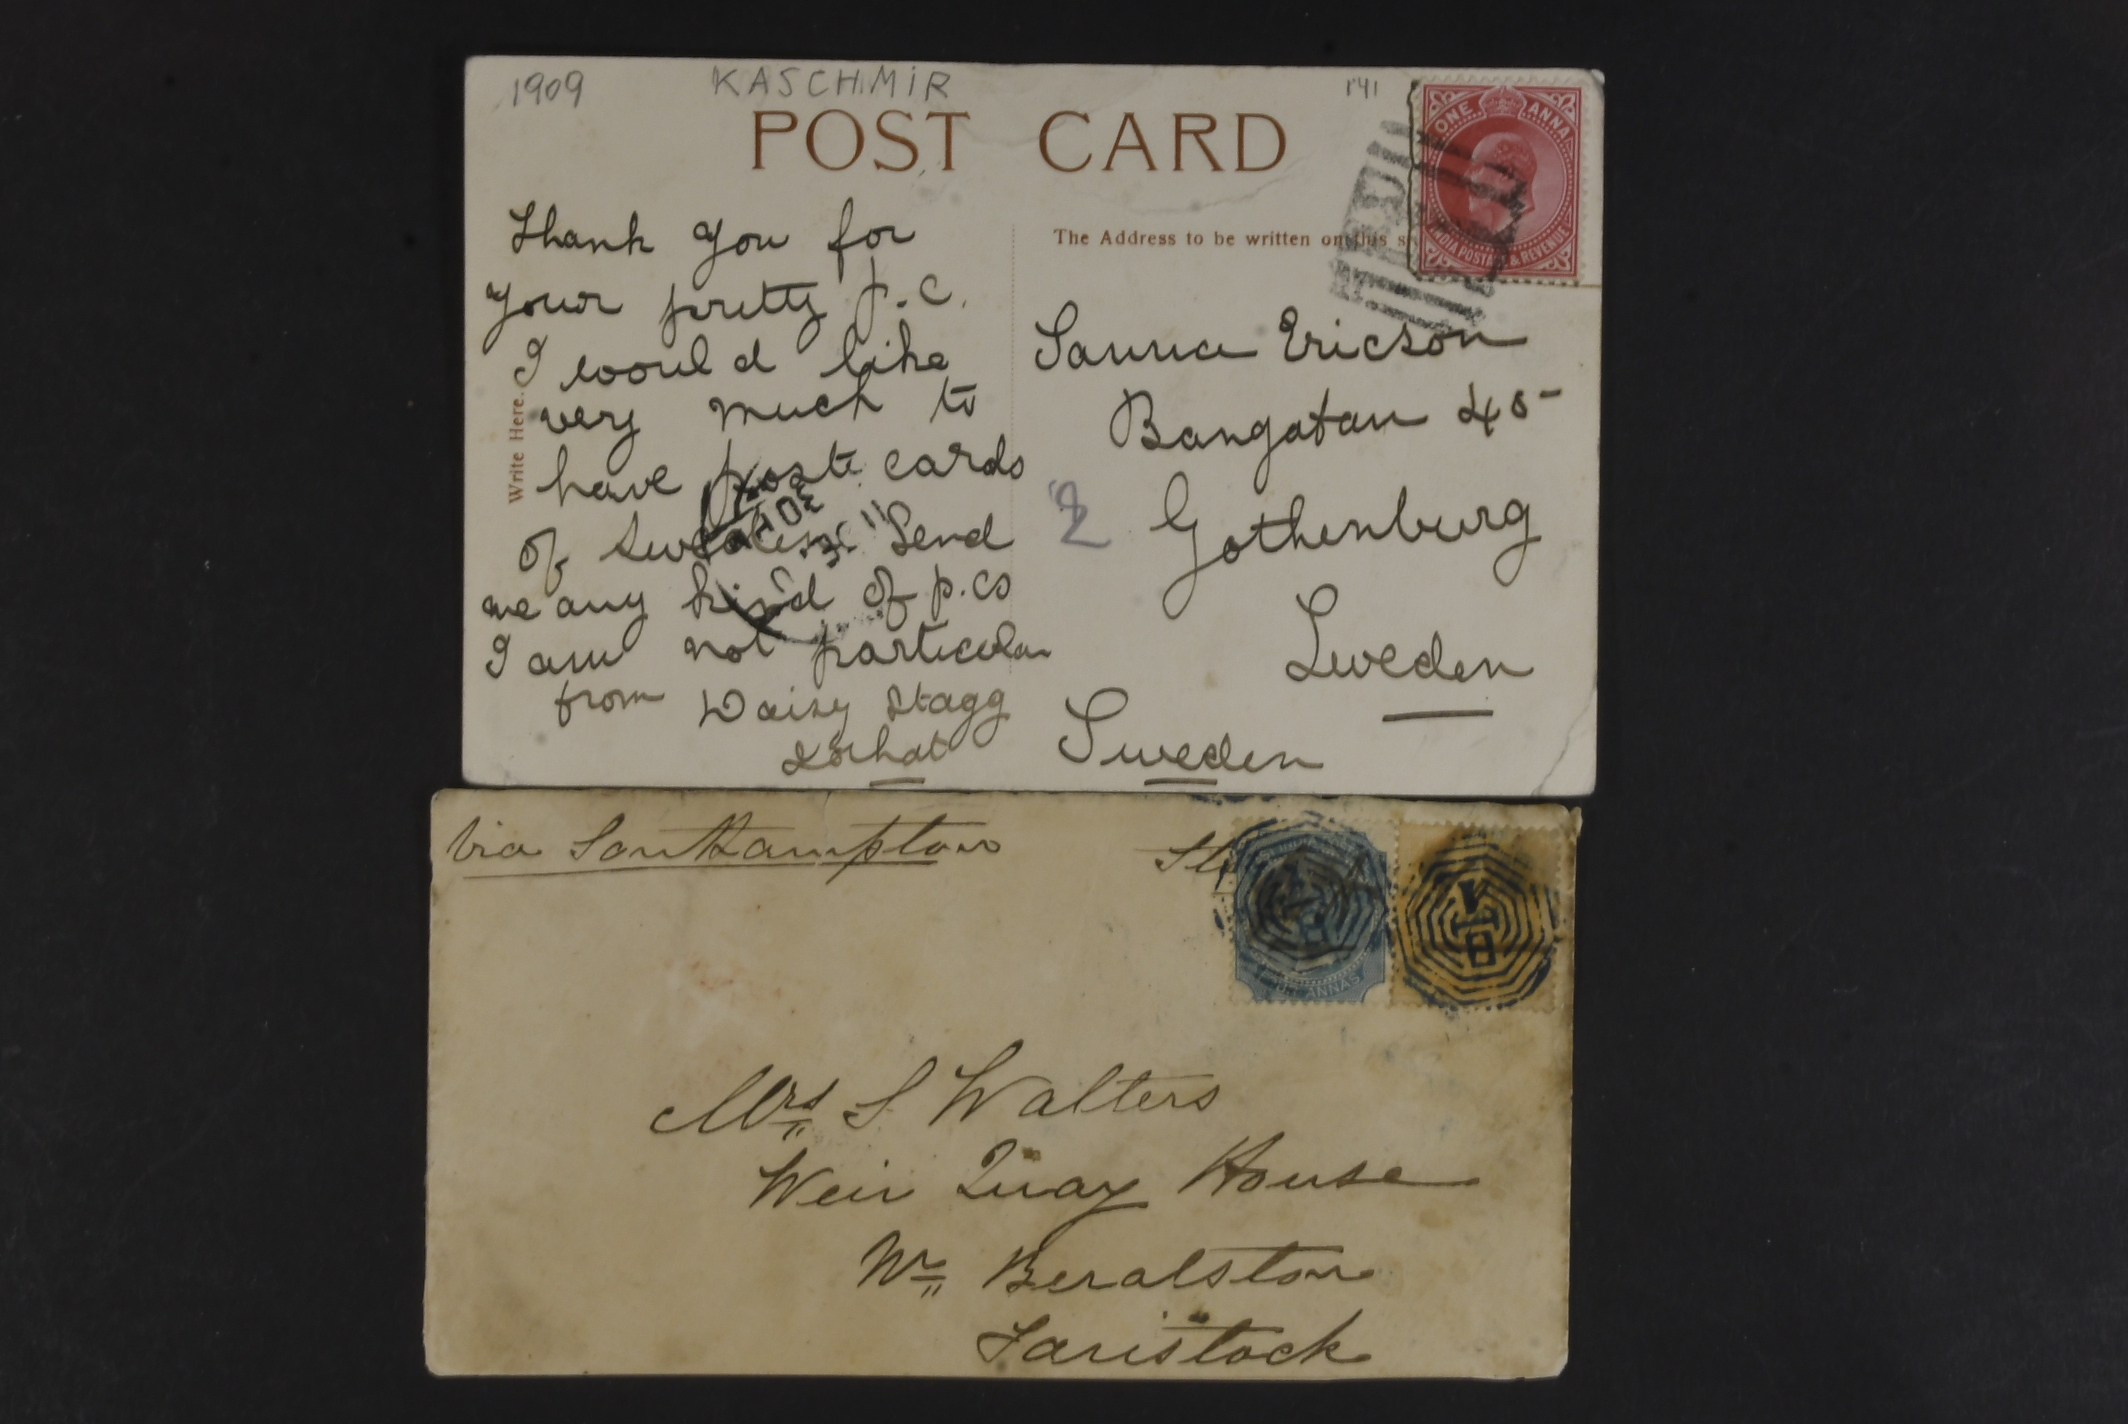 1909 KASCHMIR 141
POST CARD
ONE ANNA
INDIA POSTAGE & REVENUE
The Address to be written on this s
Write Here.
Thank you for
your pretty p.c.
I would like
very much to
have poste cards
of Sweden Send
me any kind of p.cs
I am not particular
from Daisy Stagg
Sanna Ericson
Bangatan 45
2 Gothenburg
Sweden
Sweden
via Southampton
ANNAS
1
B
Mrs S Walters
Weir Quay House
Nr Beralston
Tavistock